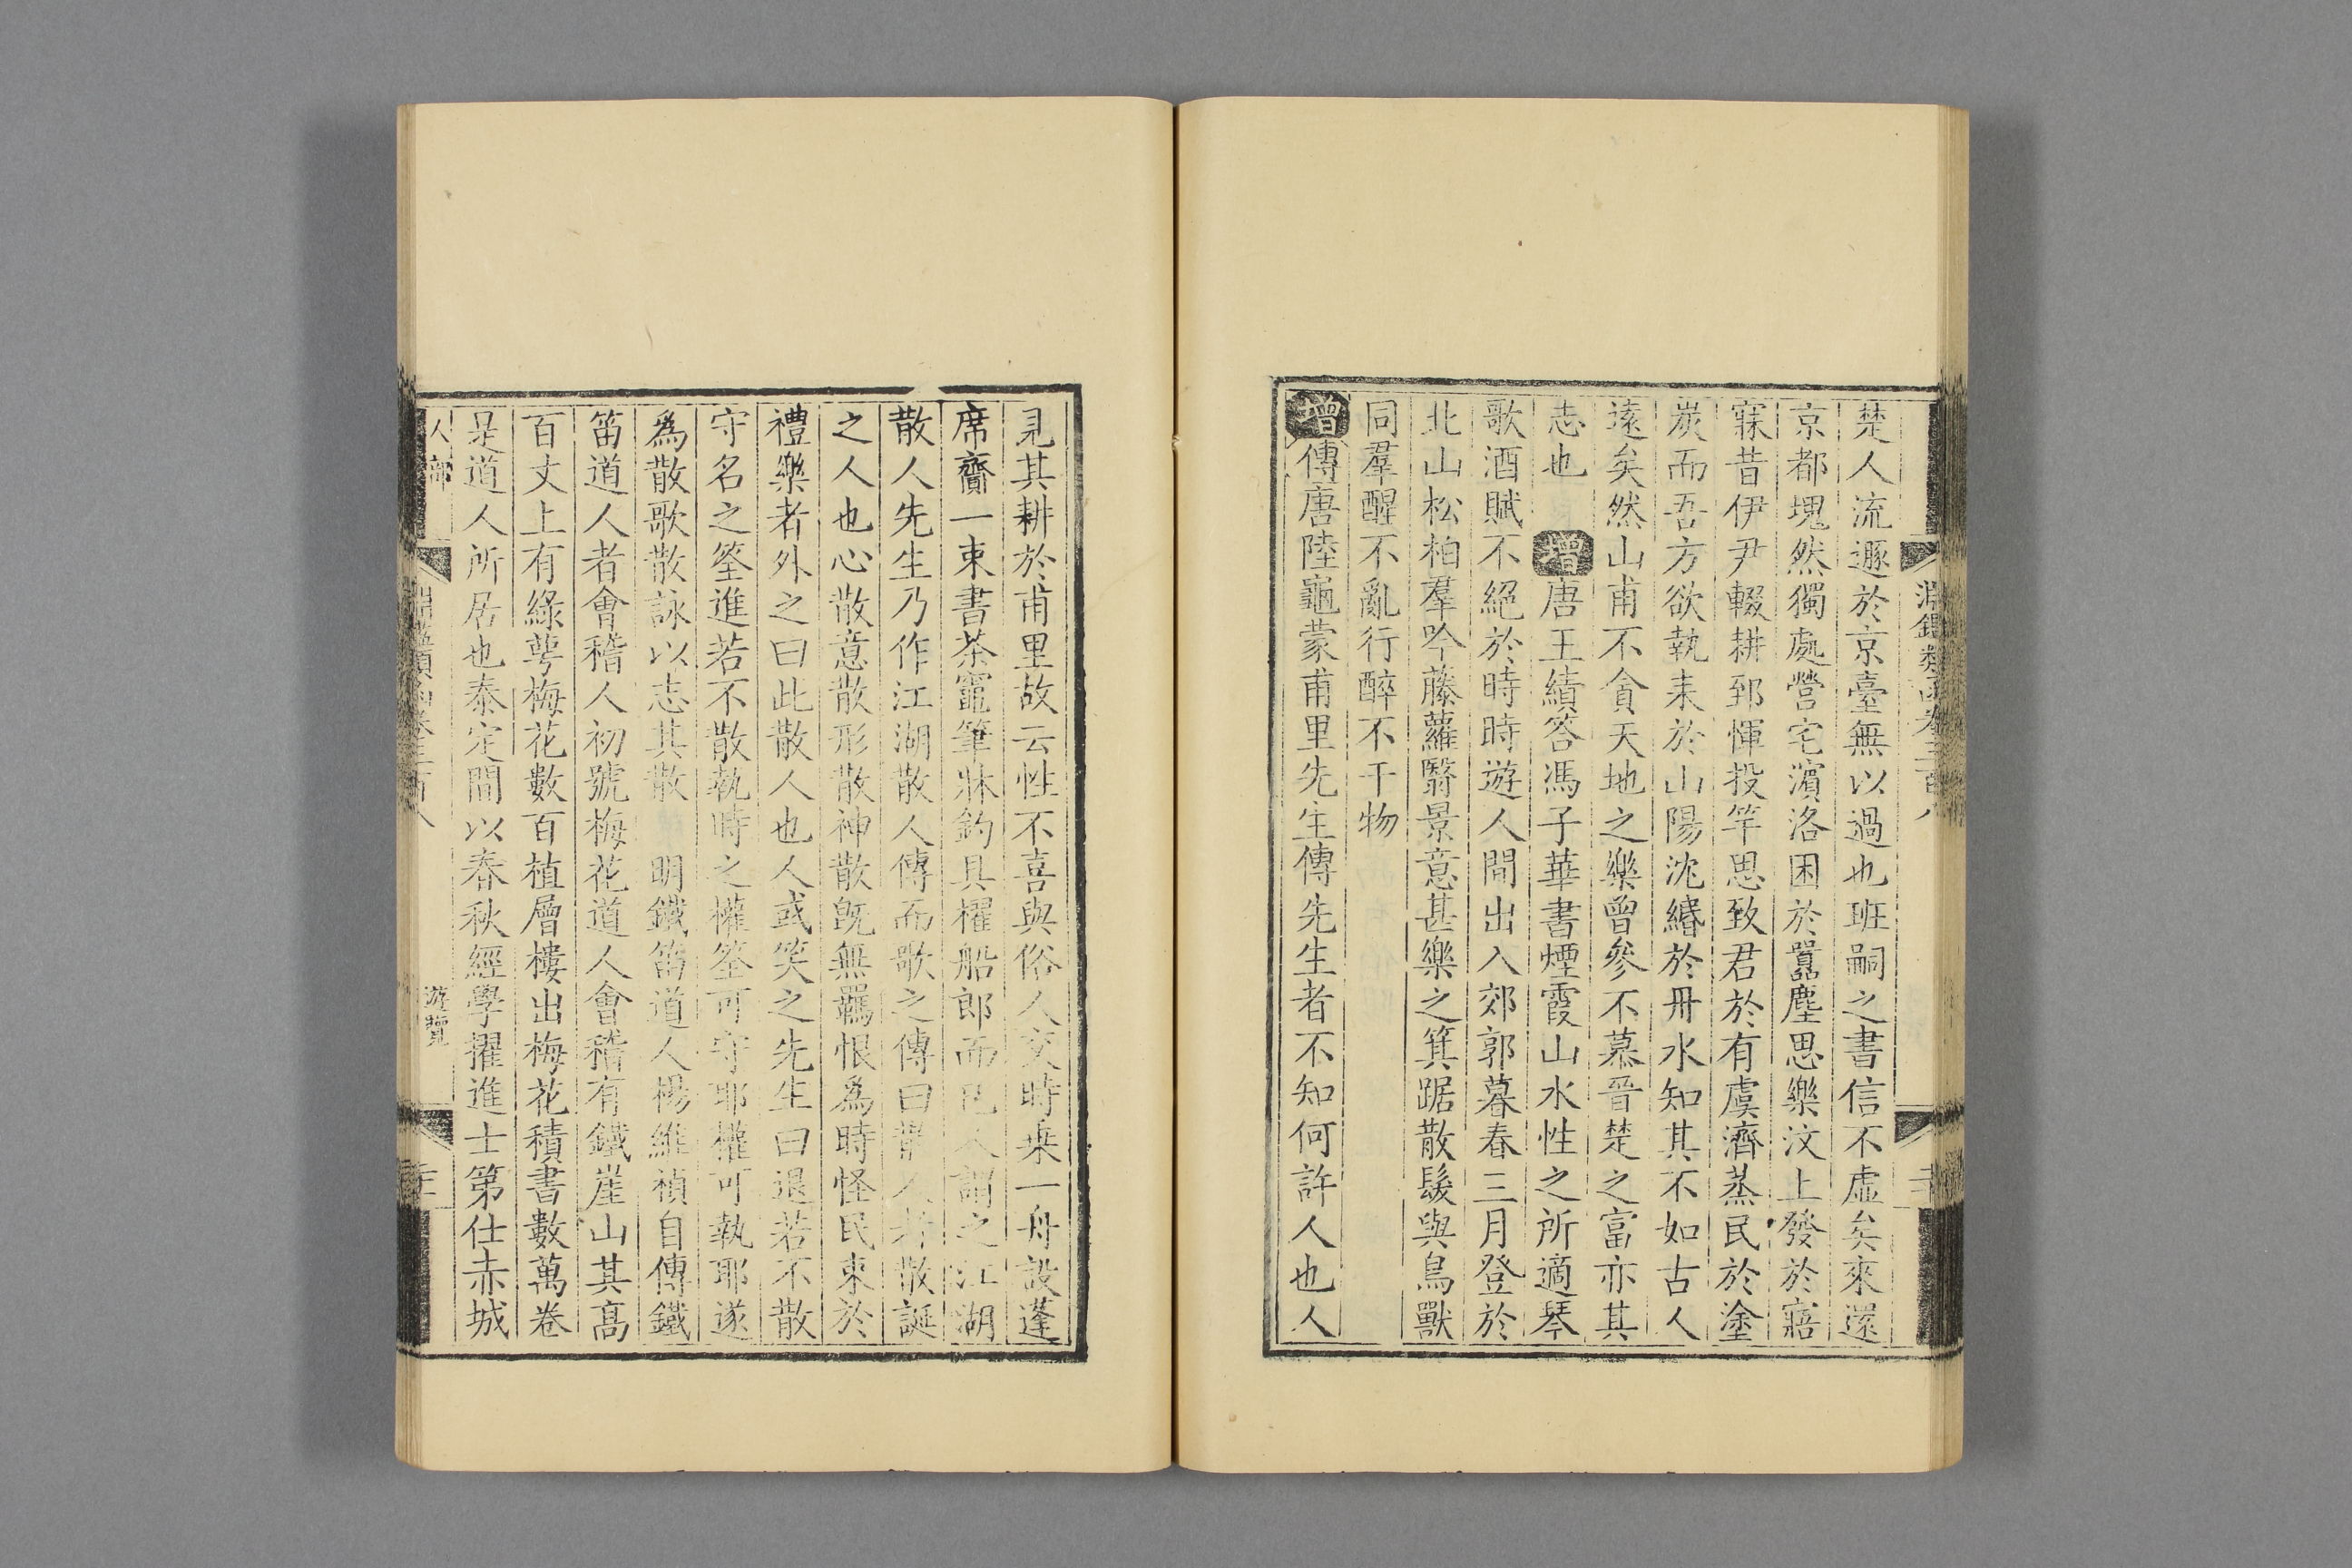 淵鑑類函卷三百八
楚人流遯於京臺無以過也班嗣之書信不虛矣來還
京都塊然獨處營宅濱洛困於囂塵思樂汶上發於寤
寐昔伊尹輟耕郅惲投竿思致君於有虞濟蒸民於塗
炭而吾方欲執耒於山陽沈緡於丹水知其不如古人
遠矣然山甫不貪天地之樂曾參不慕晉楚之富亦其
志也 增唐王績答馮子華書煙霞山水性之所適琴
歌酒賦不絕於時時遊人間出入郊郭暮春三月登於
北山松柏羣吟藤蘿翳景意甚樂之箕踞散髮與鳥獸
同羣醒不亂行醉不干物
增傳唐陸龜蒙甫里先生傳先生者不知何許人也人
見其耕於甫里故云性不喜與俗人交時乘一舟設蓬
席齎一束書茶竈筆牀釣具櫂船郎而已人謂之江湖
散人先生乃作江湖散人傳而歌之傳曰散人者散誕
之人也心散意散形散神散旣無羈恨爲時怪民束於
禮樂者外之曰此散人也人或笑之先生曰退若不散
守名之筌進若不散執時之權筌可守耶權可執耶遂
爲散歌散詠以志其散 明鐵笛道人楊維禎自傳鐵
笛道人者會稽人初號梅花道人會稽有鐵崖山其高
百丈上有綠萼梅花數百植層樓出梅花積書數萬卷
是道人所居也泰定間以春秋經學擢進士第仕赤城
人部
遊覽